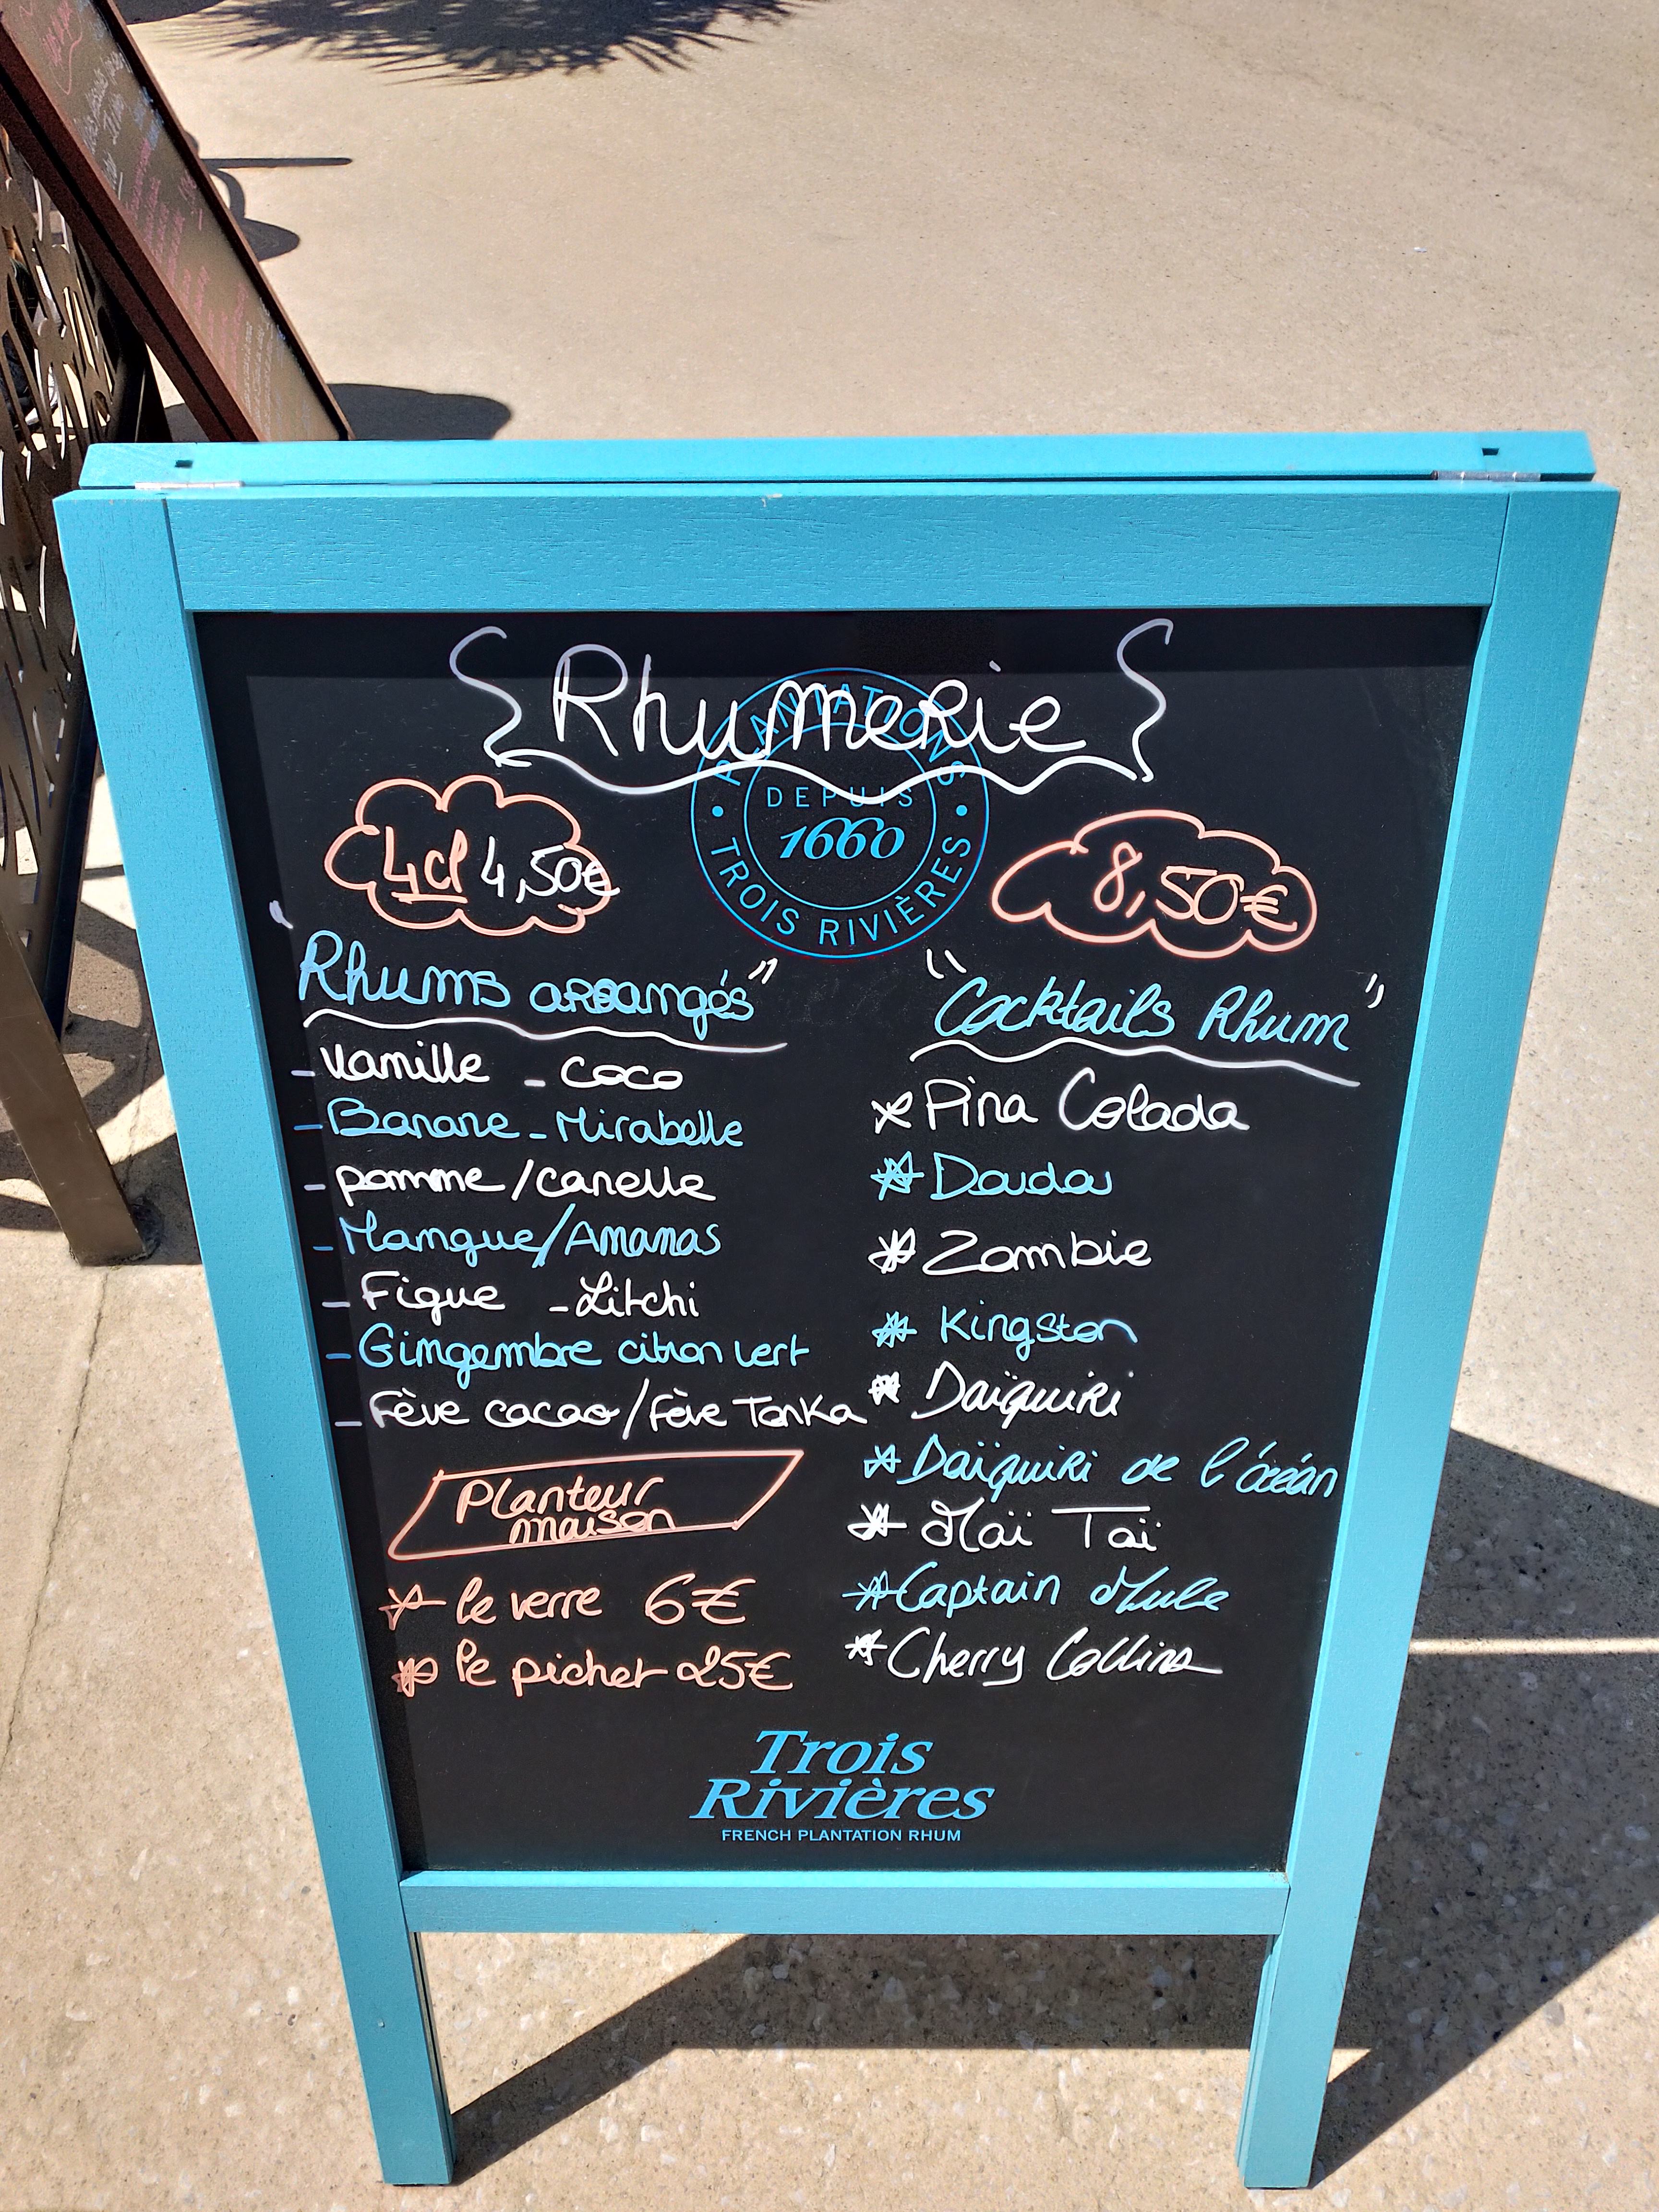 Rhumerie
PLANTATIONS
DEPUIS
1660
TROIS RIVIÈRES
4cl 4,50€
"Rhums arrangés"
- Vanille - Coco
- Banane - Mirabelle
- pomme/canelle
- Mangue/Ananas
- Figue - Litchi
- Gingembre citron vert
- Fève cacao/Fève Tonka
Planteur
maison
* le verre 6€
* le pichet 25€
8,50€
"Cocktails Rhum"
* Pina Colada
* Doudou
* Zombie
* Kingston
* Daïquiri
* Daïquiri de l'océan
* Maï Taï
* Captain Mule
* Cherry Collins
Trois
Rivières
FRENCH PLANTATION RHUM